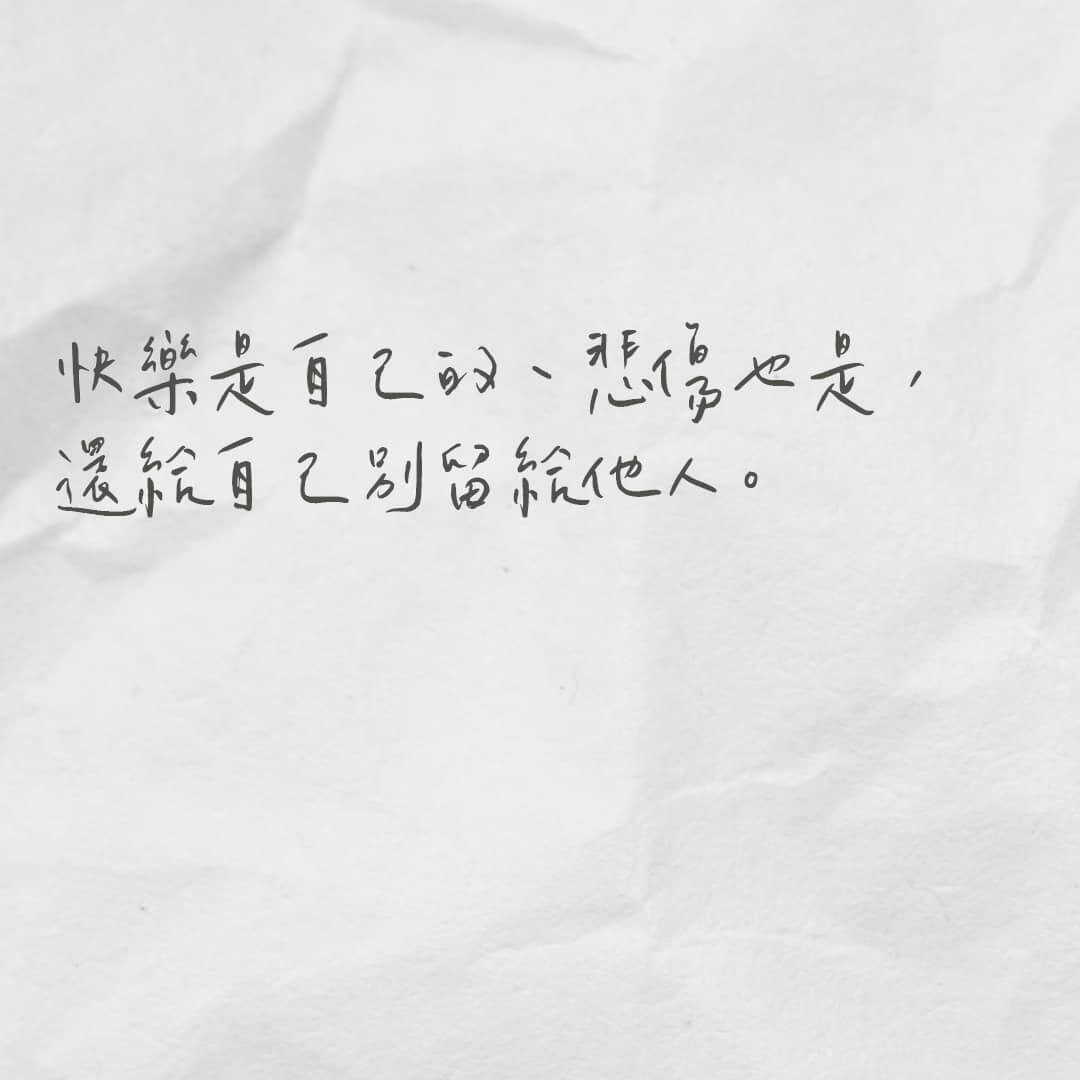 快樂是自己的、悲傷也是，
還給自己別留給他人。